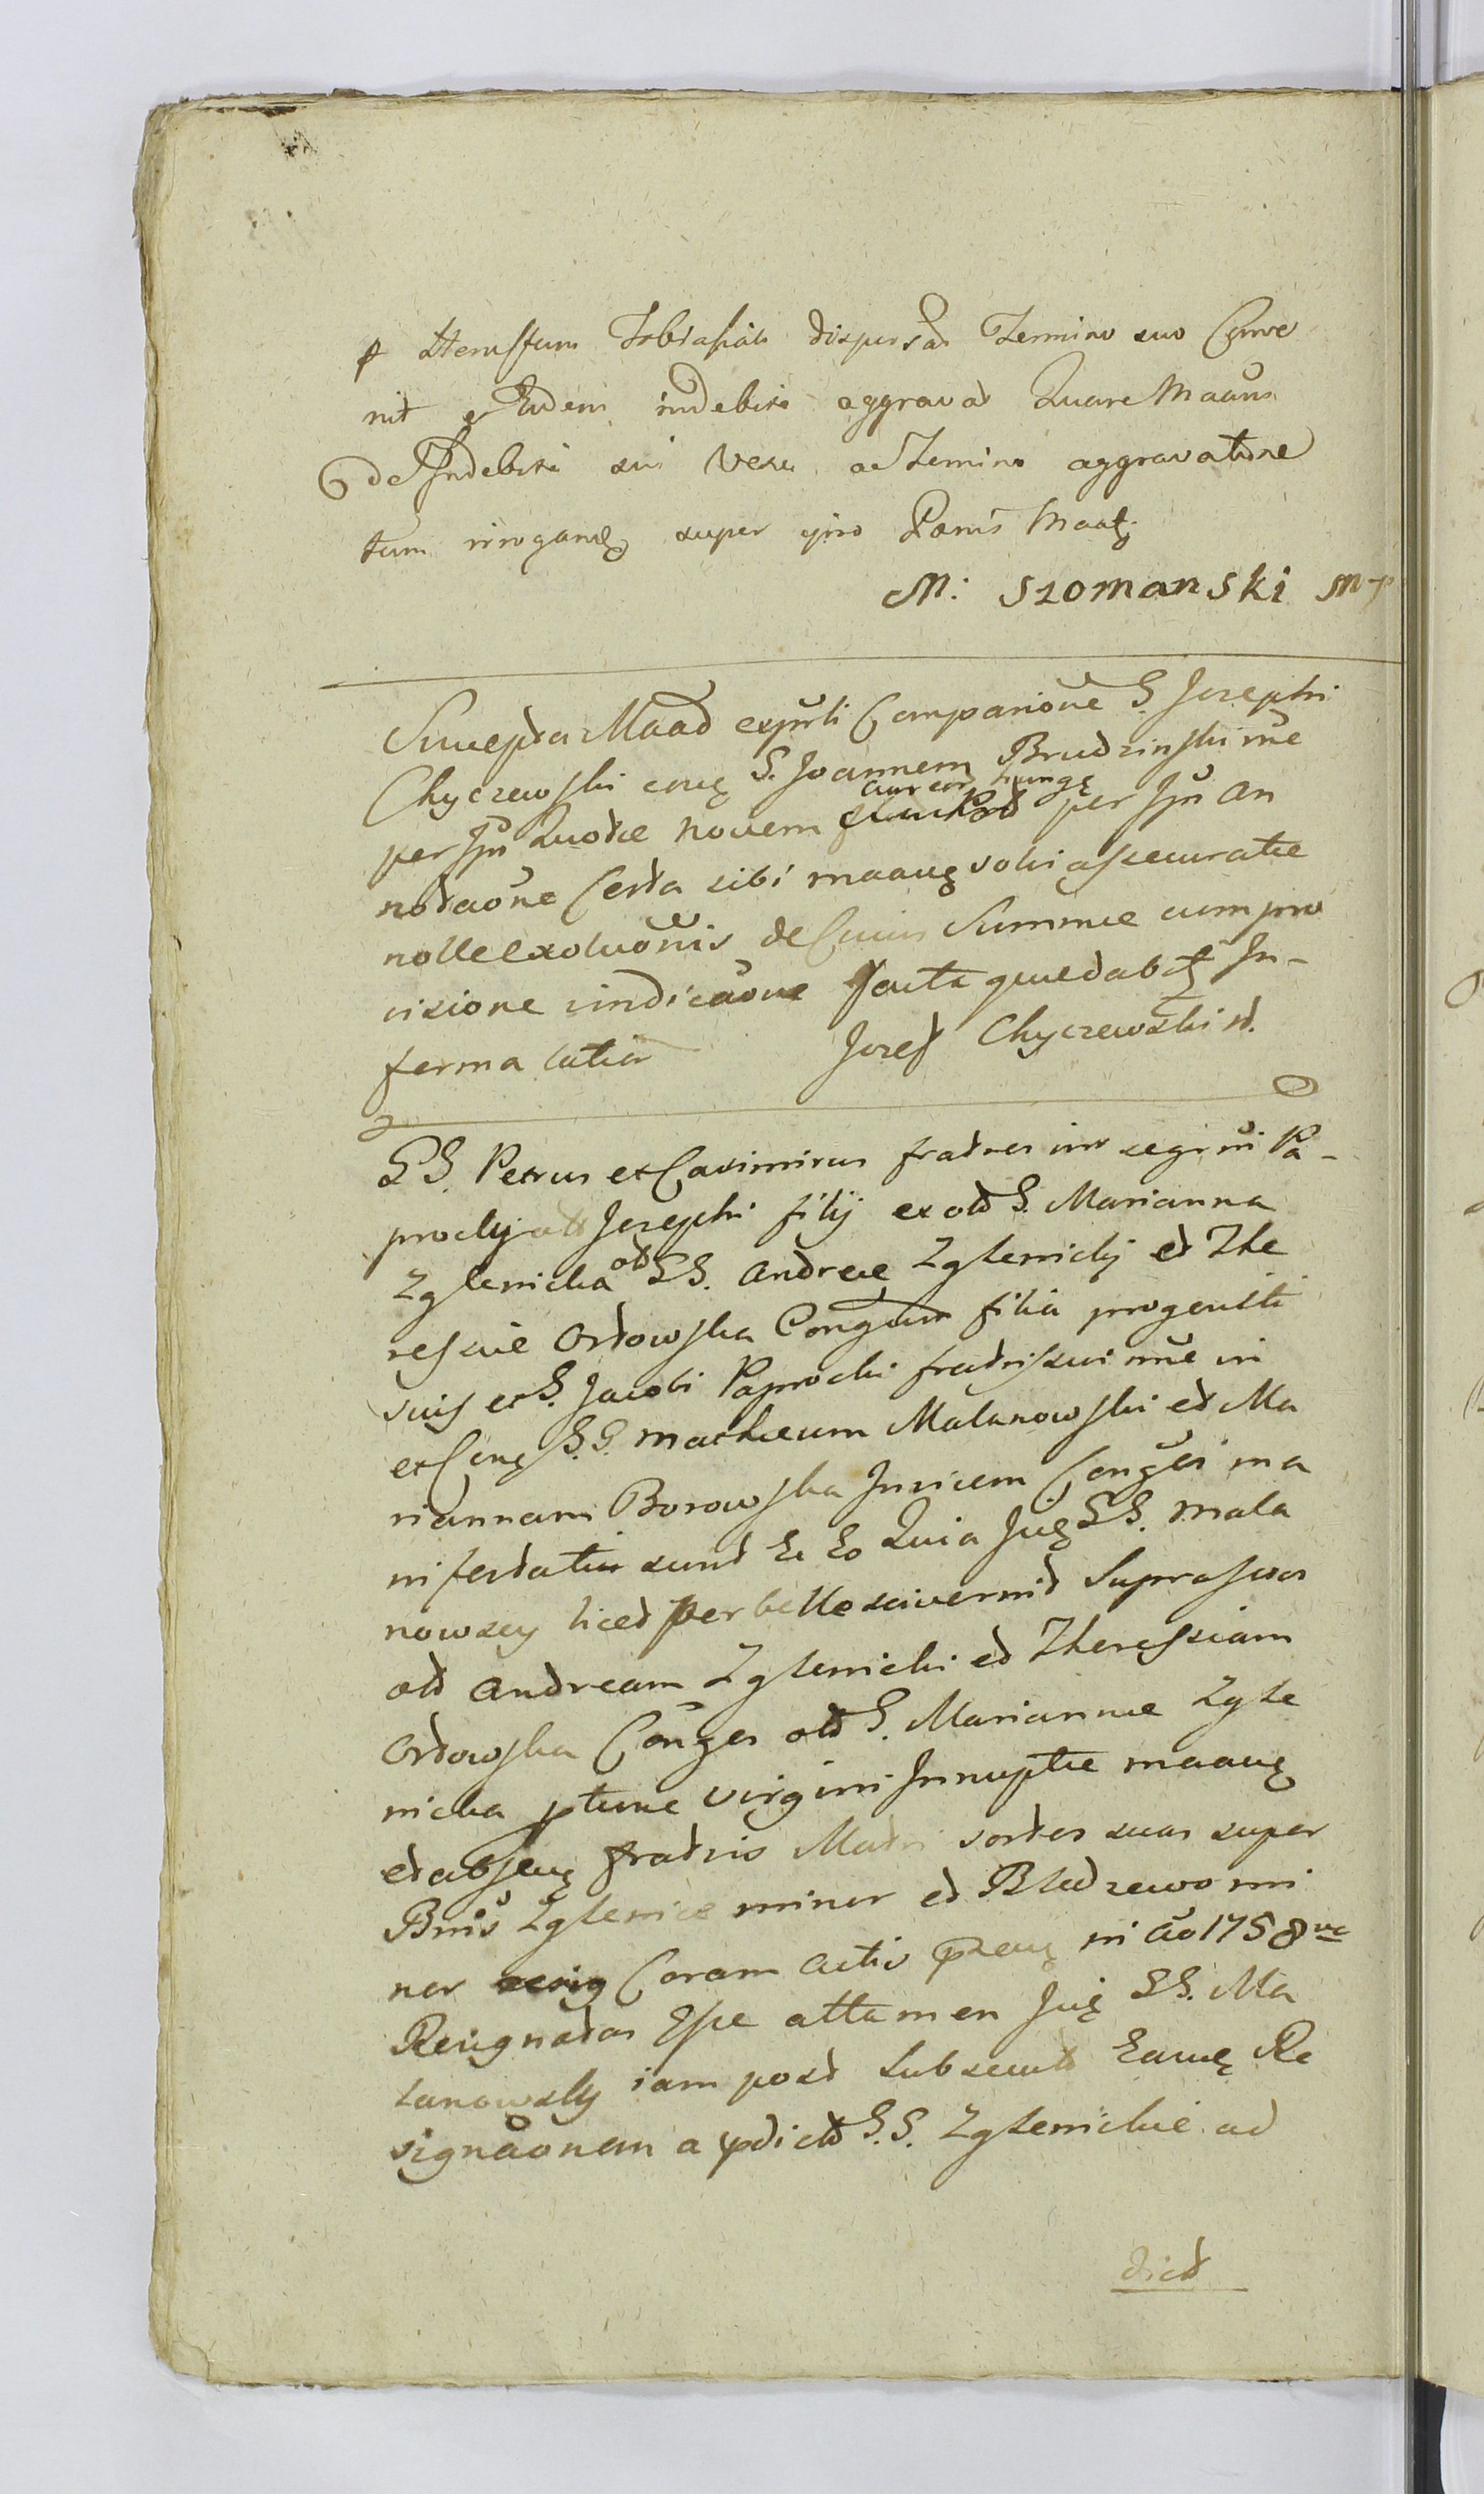 dispersat Termino suo Conve
nit et Eudem indebite aggravat Quare Maaûs
de Indebite sui Vexa ac Termino aggravatione
tum irrogand super qûo Pœnis Maat
M: Szomanski mp
Suscepta Maaô expûsti Comparitiône G. Josephi
Chyczewski cong G. Joannem Brudzinski iñe
per Ipû Quotæ novem aureor hung per Ipû An
notaône Certa sibi maang solvi assecuratæ
nolle exoluônis de Cuius Summæ cum pro
visione vindicaône Facta quædabt In-
ferma latior Jozef Chyczewski st.
GG. Petrus et Casimirus fratres inter se girñi Pa-
procky olt Josephi filij ex olt G. Marianna
Zglenicka olt GG. Andreæ Zglenicky et The
ressiæ Ordowska Congum filia progeniti
suis et G. Jacobi Paprocki fratris sui iñe in
et Cong GG. Mathæum Malanowski et Ma
riannam Borowska Invicem Conges ma
nifestati sunt Ex Eo Quia Ing GG. Mala
nowscy licet per belle sciverint Suprascros
olt Andream Zglenicki et Theressiam
Ordowska Conges olt G. Mariannæ Zgle
nicka ptunc virgini Innuptæ maang
et absen fratris Matri sortes suas super
Bnis Zglenice minor et Bledzewo mi
nor Coram Actis præng in Aô 1758ve
Resignatas Esse attamen Ing GG. Ma
lanowscy iam post subsecut Eamq Re
signaônem a prædictt G.G. Zglenickie ad
dict